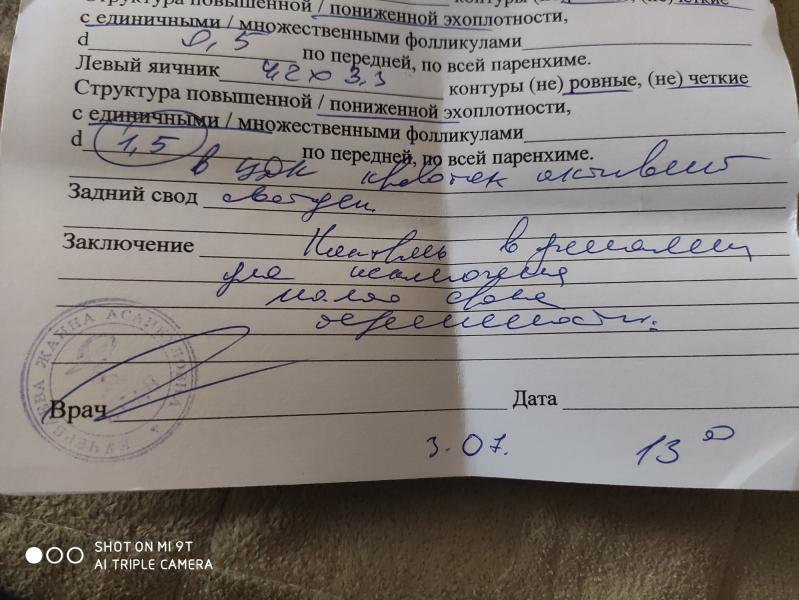 Структура повышенной / пониженной эхоплотности, контуры (не) ровные, (не) четкие
с единичными / множественными фолликулами
d 0,5 по передней, по всей паренхиме.
Левый яичник 4,2 х 3,3 контуры (не) ровные, (не) четкие
Структура повышенной / пониженной эхоплотности,
с единичными / множественными фолликулами
d 1,5 по передней, по всей паренхиме.
в ЦДК кровоток активен
Задний свод свободен.
Заключение Контроль в динамике
для исключения
малого срока
беременности.
КУЧЕРБАЕВА ЖАННА
Врач Дата
3.07. 13 00
SHOT ON MI 9T
AI TRIPLE CAMERA